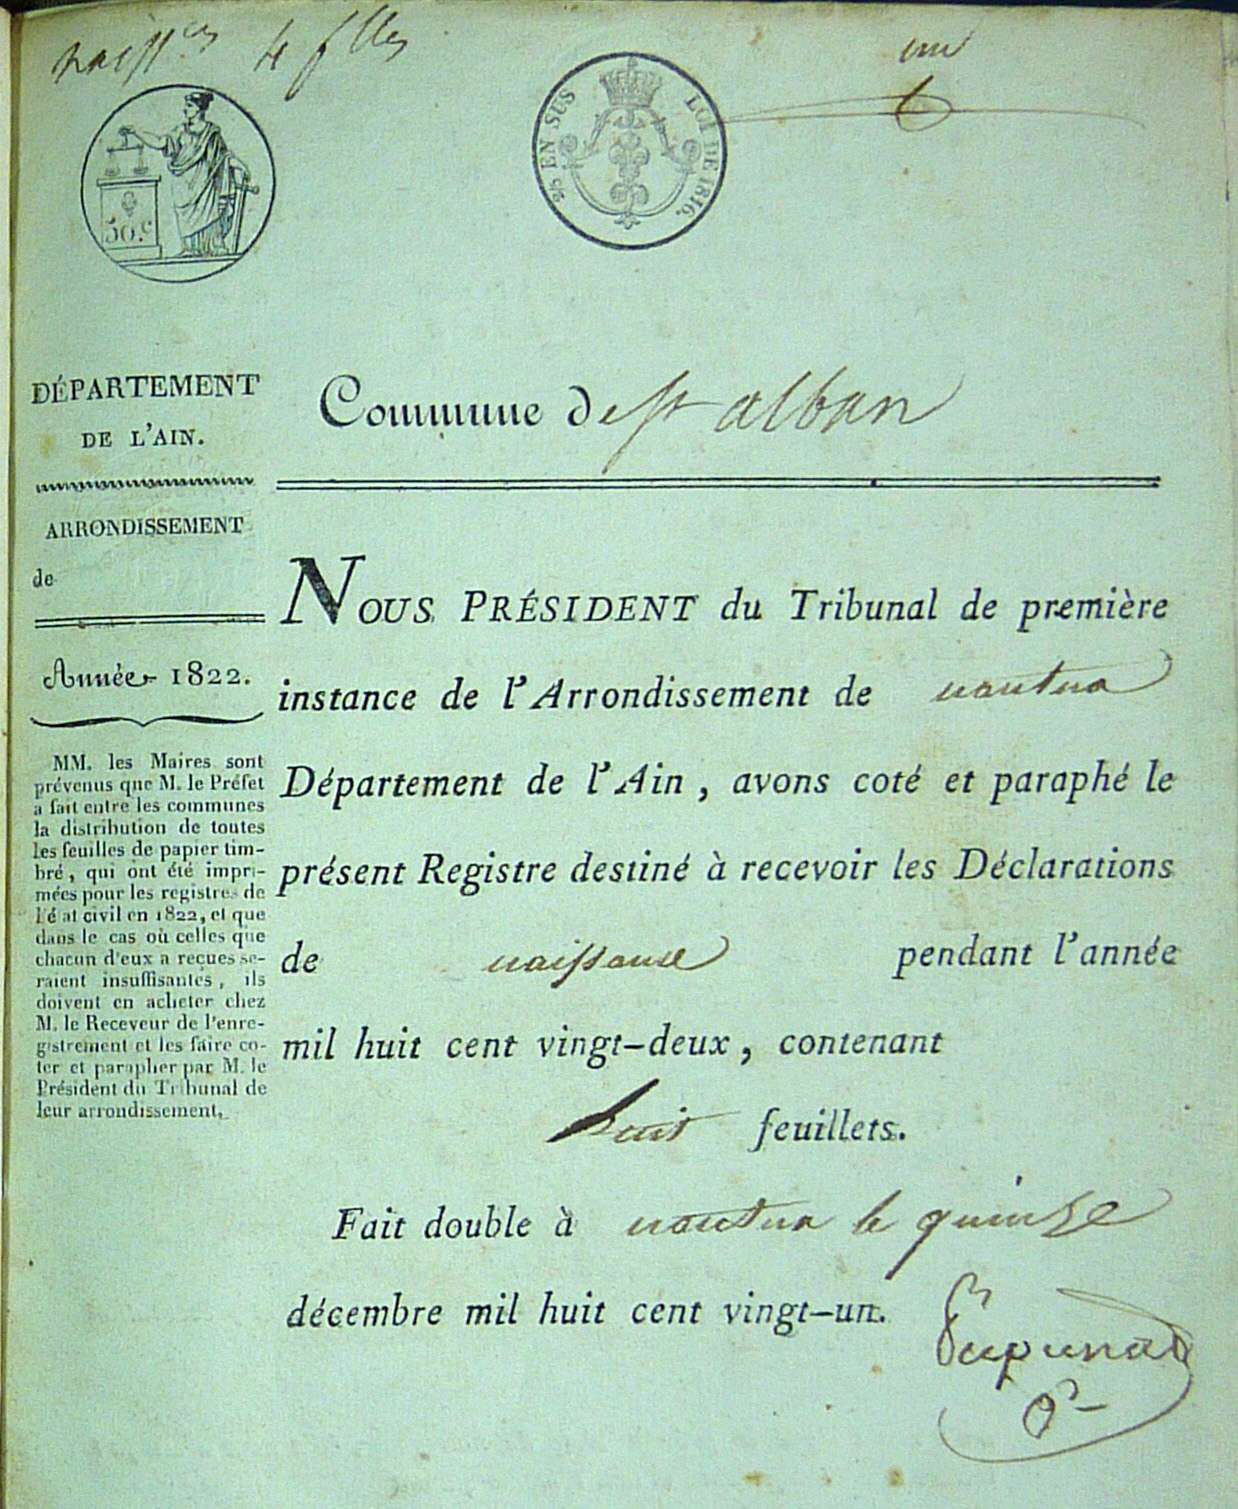 naiss.ces 4 flles
un
50.c
25 EN SUS LOI DE 1816.
DÉPARTEMENT
DE L'AIN.
ARRONDISSEMENT
de
Année 1822.
MM. les Maires sont
prévenus que M. le Préfet
a fait entre les communes
la distribution de toutes
les feuilles de papier tim-
bré, qui ont été impri-
mées pour les registres de
l'état civil en 1822, et que
dans le cas où celles que
chacun d'eux a reçues se-
raient insuffisantes, ils
doivent en acheter chez
M. le Receveur de l'enre-
gistrement et les faire co-
ter et parapher par M. le
Président du Tribunal de
leur arrondissement.
Commune de st alban
NOUS PRÉSIDENT du Tribunal de première
instance de l'Arrondissement de nantua
Département de l'Ain, avons coté et paraphé le
présent Registre destiné à recevoir les Déclarations
de naissance pendant l'année
mil huit cent vingt-deux, contenant
huit feuillets.
Fait double à nantua le quinze
décembre mil huit cent vingt-un.